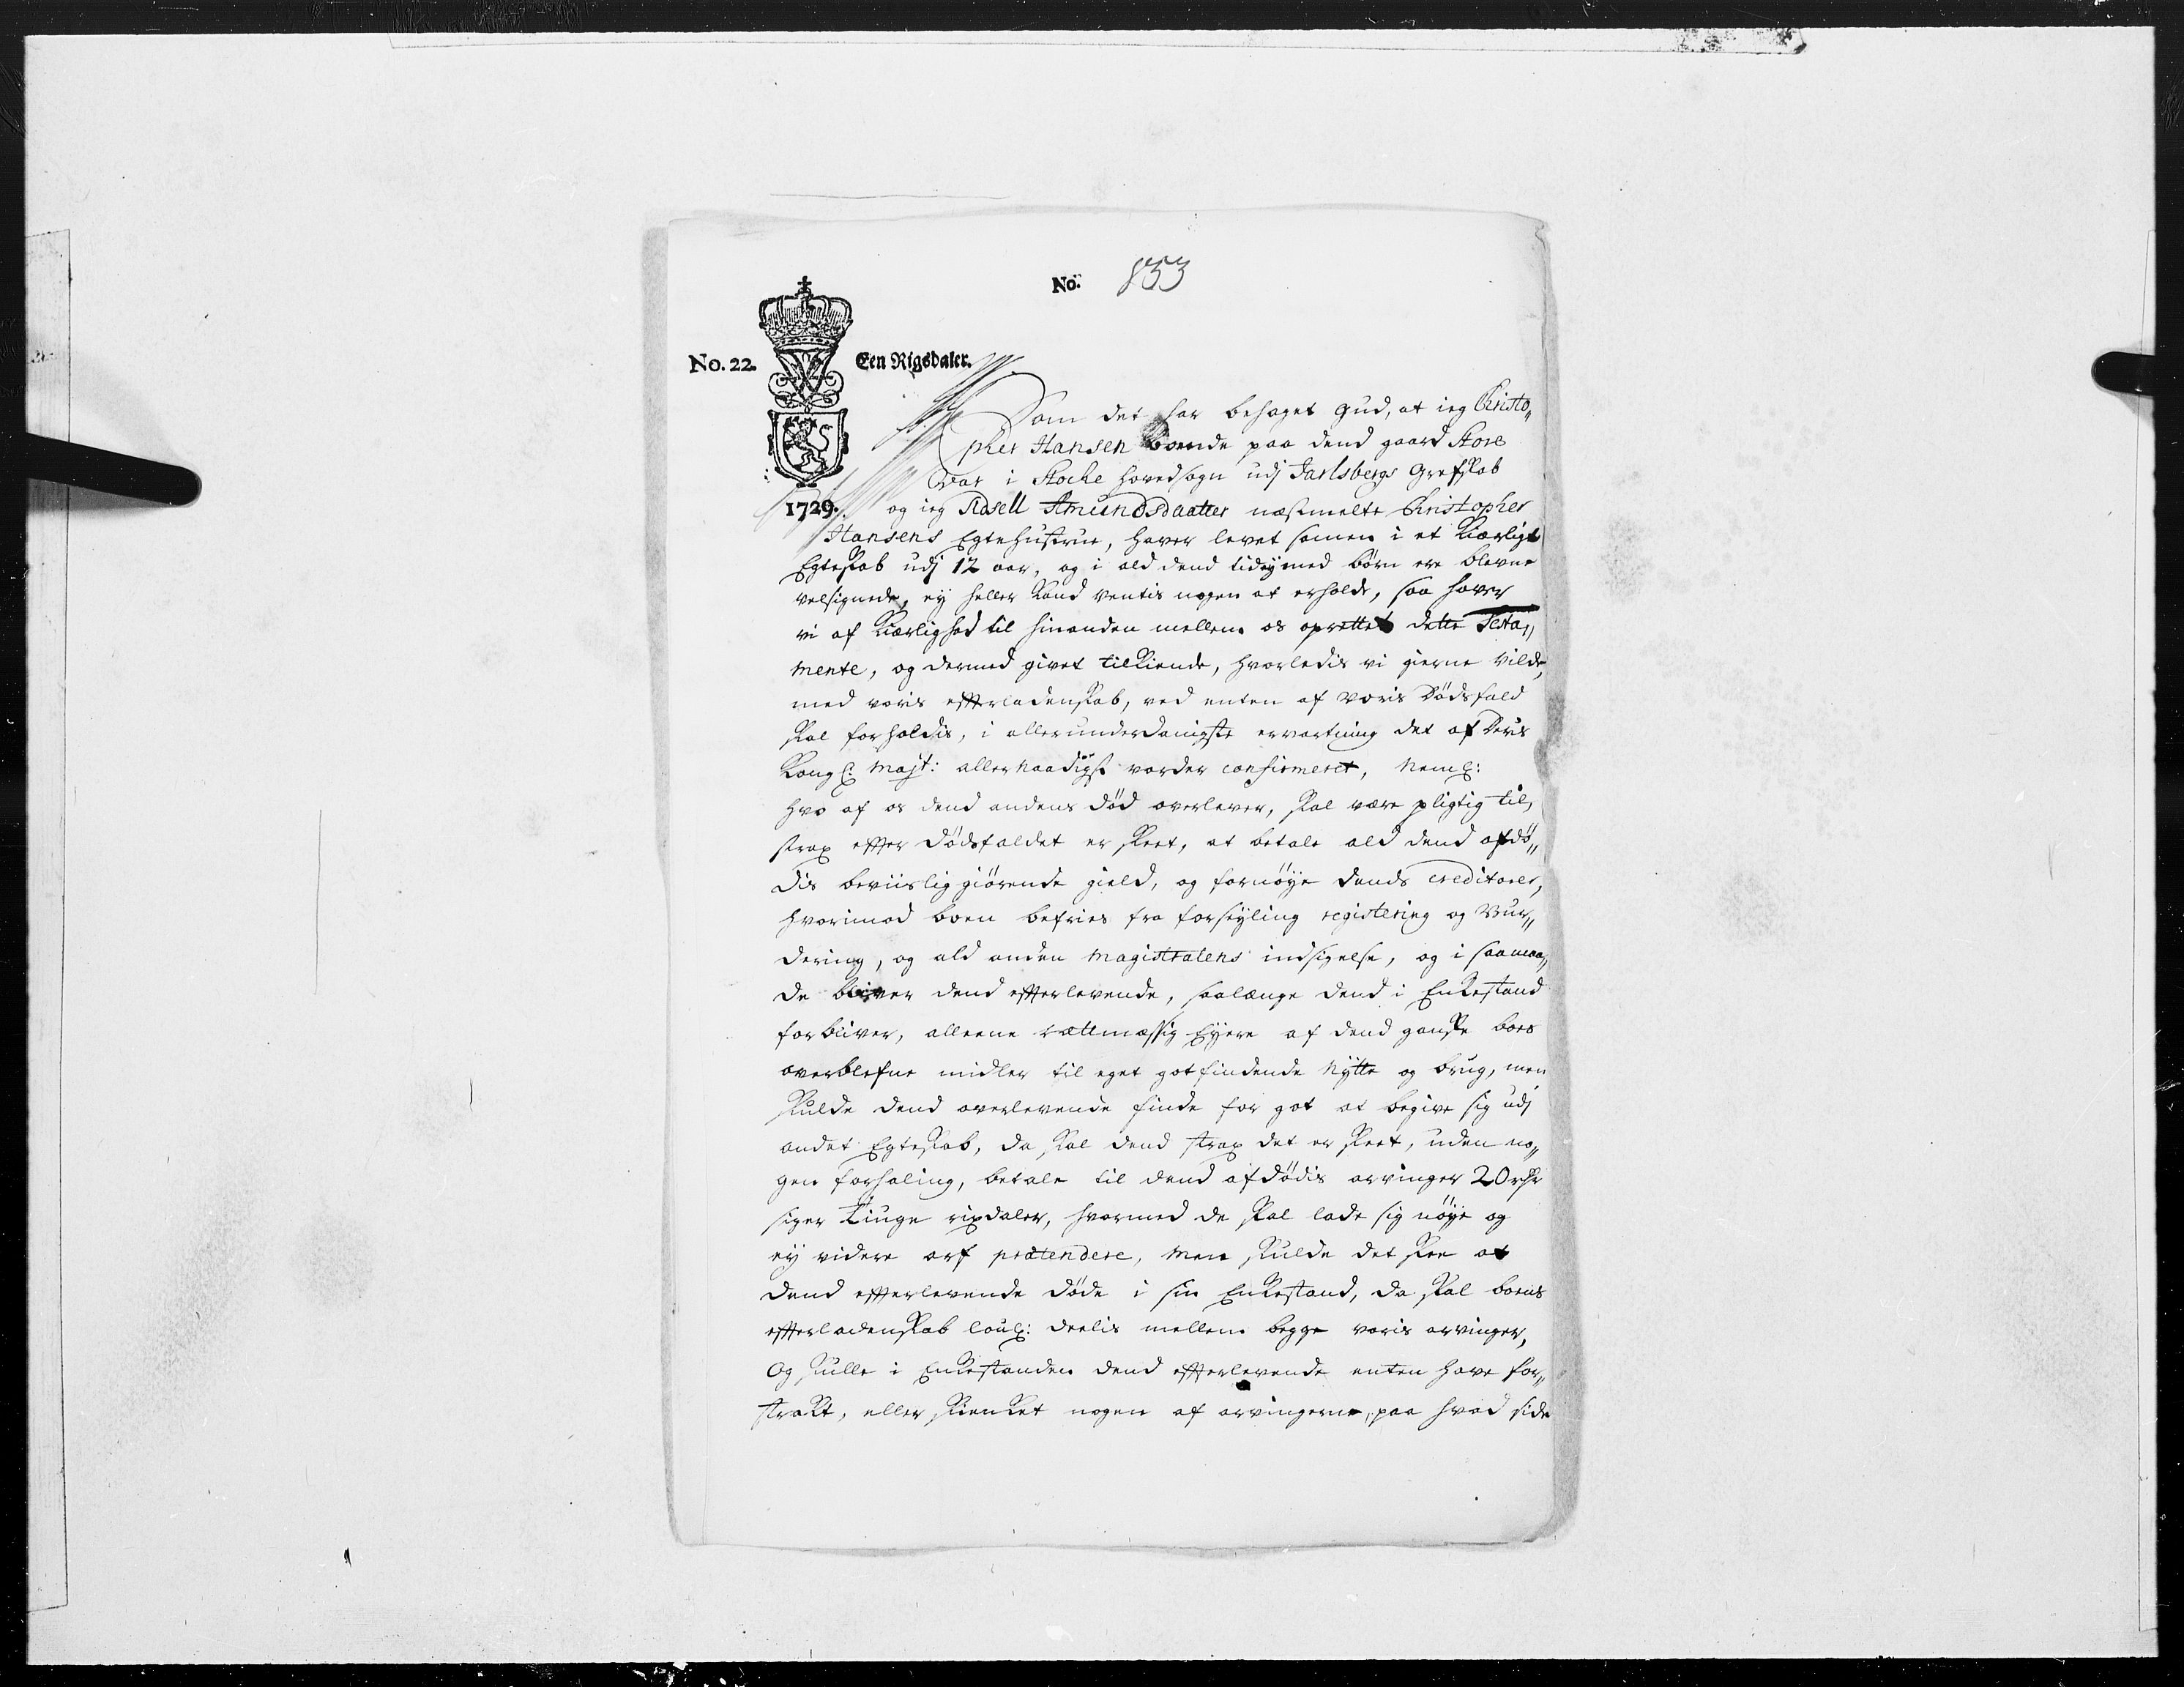 No. 853
No. 22. Een Rigsdaler.
1729.
Som det har behaget Gud, at ieg Christo„
pher Hansen boende paa dend gaard Store
Var i Stoche hovedsogn udj Jarlsbergs Grefskab
og ieg Sidsell Amundsdaatter næstmelte Christopher
Hansens Egtehustrue, haver levet samen i et kierligt
Egteskab udj 12 aar, og i ald dend tid ey med børn ere blevne
velsignede, ey heller kand ventis nogen at erholde, saa haver
vi af kierlighed til hinanden mellem os oprettet dette Testa„
mente, og dermed givet tilkiende, hvorledis vi gierne vilde,
med voris efterladenskab, ved enten af voris Dødsfald
skal forholdis, i allerunderdanigste ervartning det af Deris
Kongl: Majt: allernaadigst vorder confirmeret, Neml:
hvo af os dend andens død overlever, skal være pligtig til,
strax efter Dødsfaldet er skeet, at betale ald dend afdø„
dis beviislig giørende gield, og fornøye dends creditorer,
hvorimod boen befries fra forseyling registering og Vur„
dering, og ald anden Magistratens indsigelse, og i saamaa„
de bliver dend efterlevende, saalænge dend i Enkestand
forbliver, alleene rættmæssig Eyere af dend ganske boes
overblefne midler til eget gotfindende Nytte og brug, men
skulde dend overlevende finde for got at begive sig udj
andet Egteskab, da skal dend strax det er skeet, uden no„
gen forhaling, betale til dend afdødis arvinger 20 rdr
siger tiuge rixdaler, hvormed de skal lade sig nøye og
ey videre arf prætendere, Men skulde det skee at
dend efterlevende døde i sin Enkestand, da skal boens
efterladenskab loul: deelis mellem begge voris arvinger,
Og skulle i Enkestanden dend efterlevende enten have for„
strakt, eller skienket nogen af arvingerne, paa hvad side